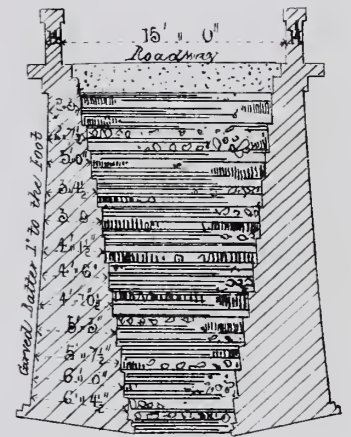 15' " 0"
Roadway
2.7½
3.4½
3 9
4'.1½"
4'.6"
4'.10½"
5'.3"
5".7½"
6'."0"
6'"4½"
Curved Batter 1" to the foot